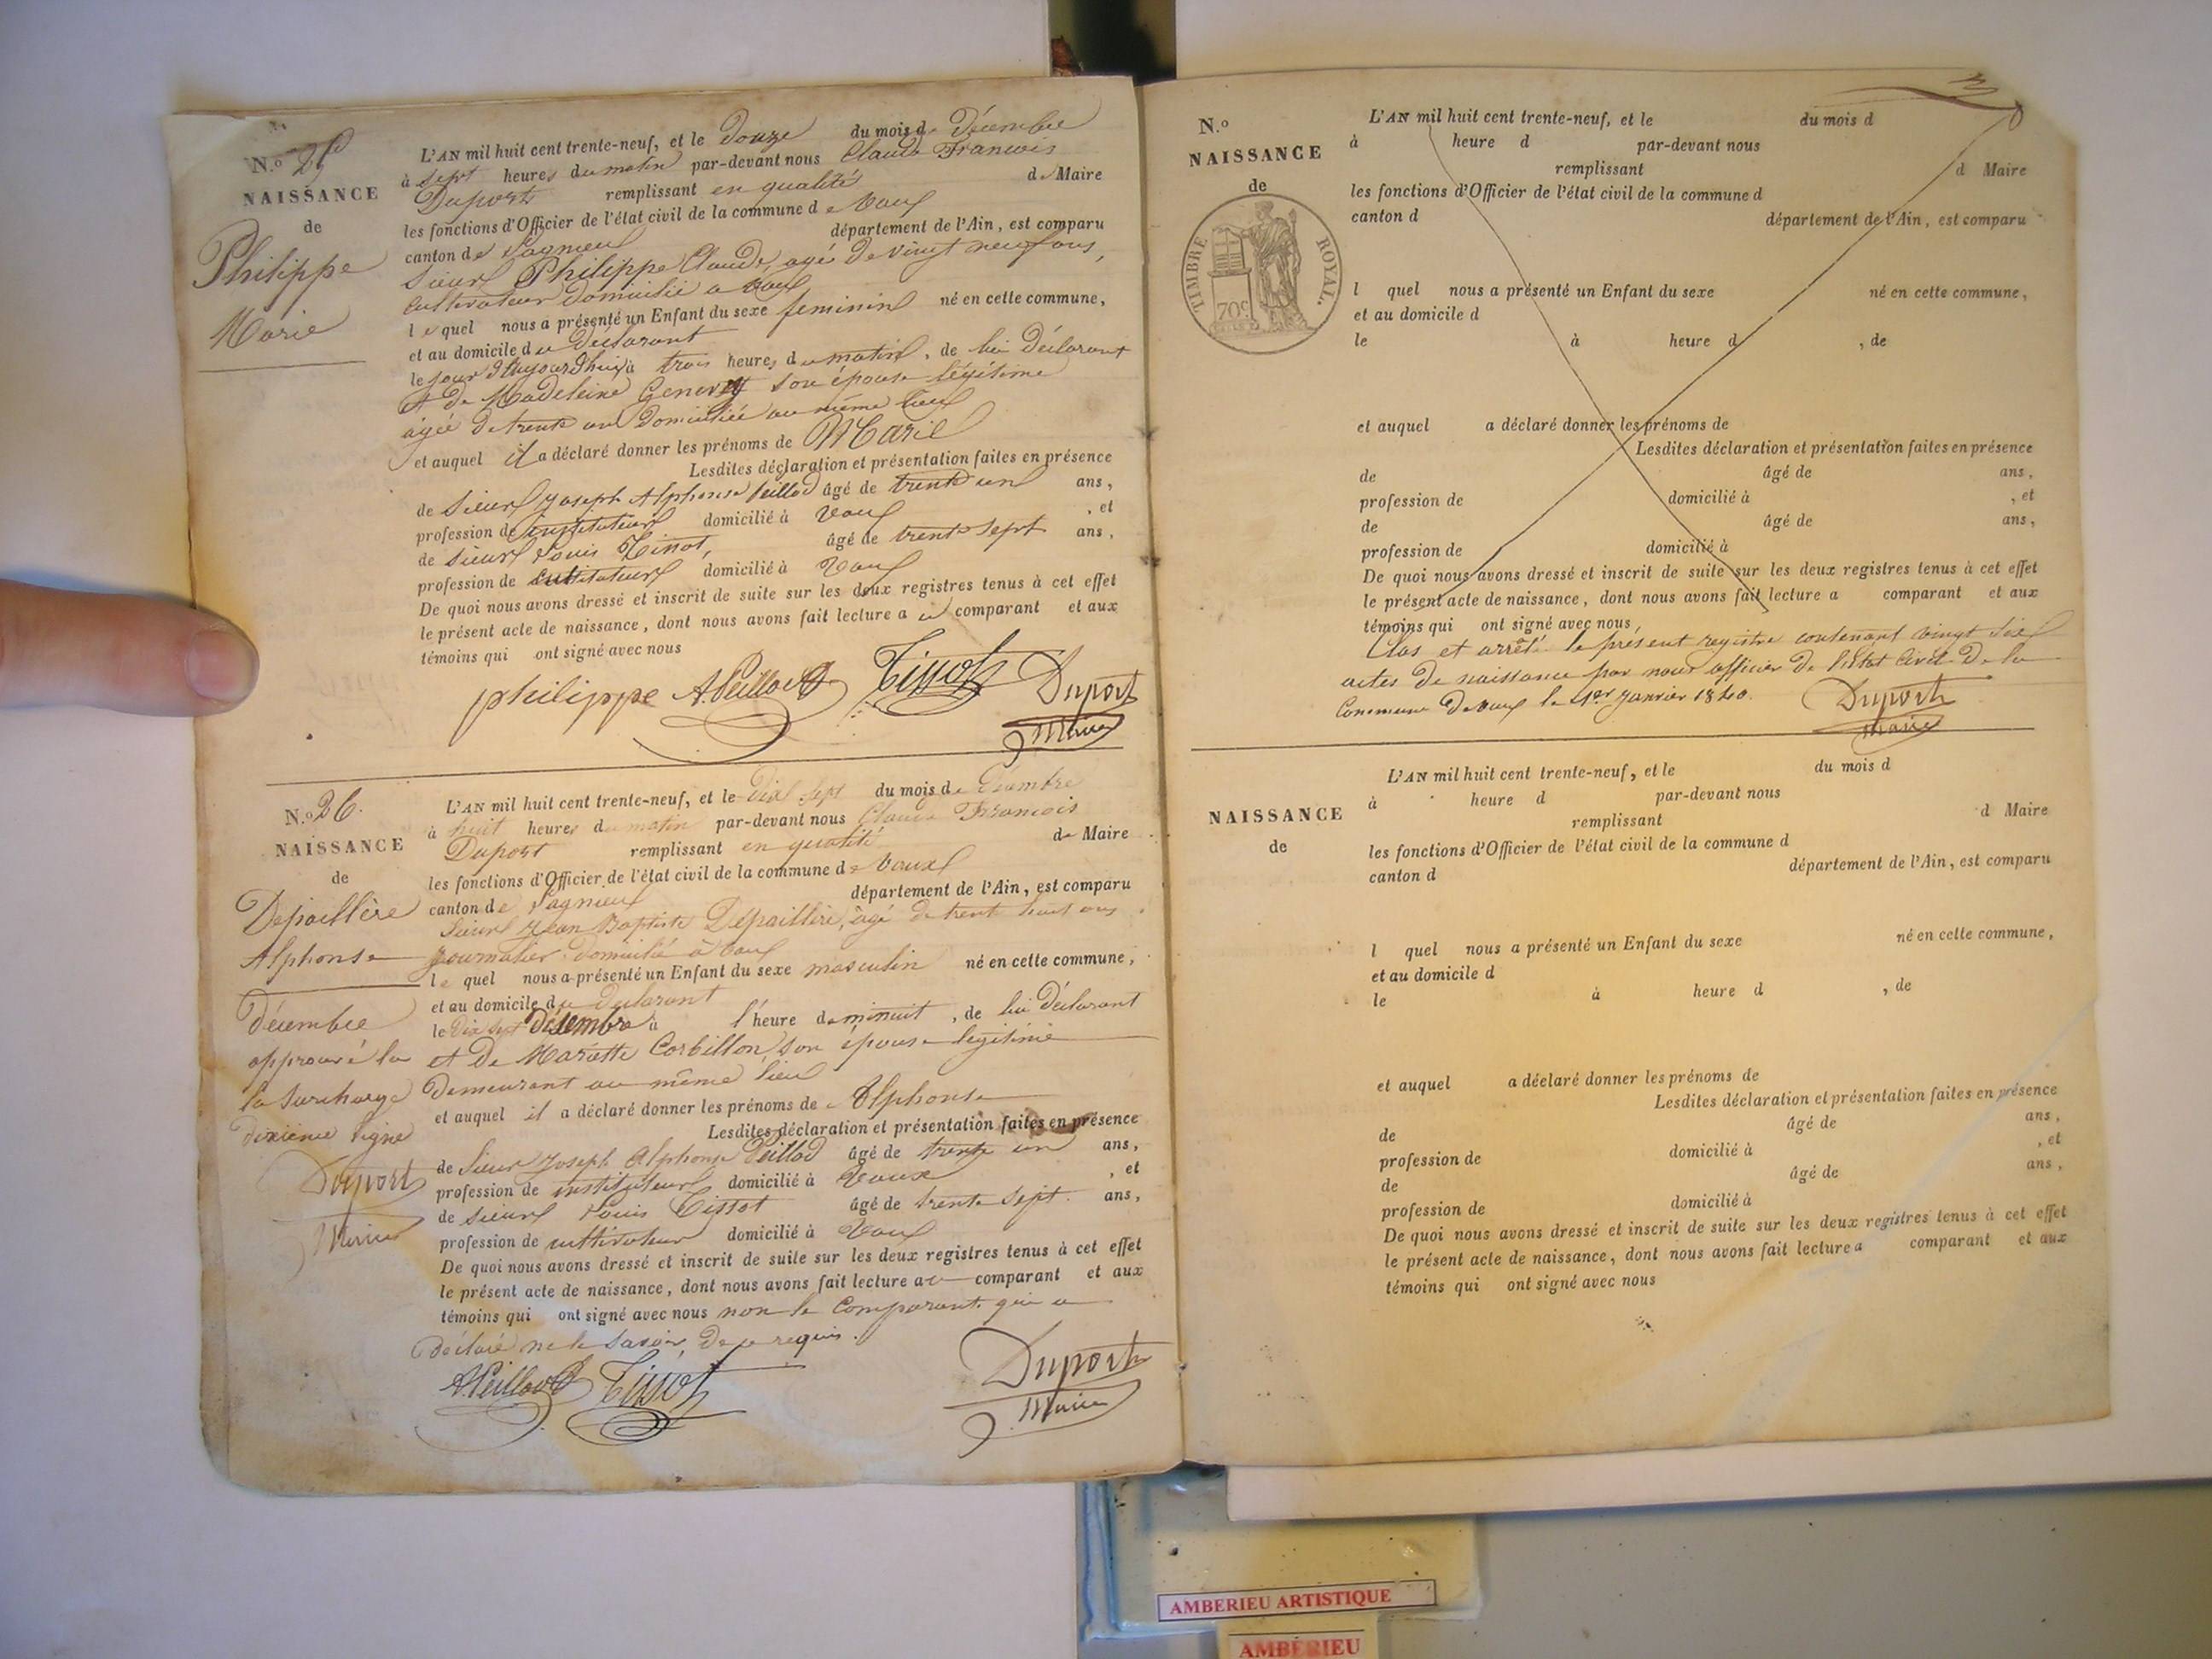 N.º 25
NAISSANCE
de
Philippe
Marie
L'AN mil huit cent trente-neuf, et le douze du mois de Décembre
à sept heures du matin par-devant nous Claude Francois
Duport remplissant en qualité de Maire
les fonctions d'Officier de l'état civil de la commune de Vaux
canton de Lagnieu département de l'Ain, est comparu
Sieur Philippe Claude, agé de vingt neuf ans,
cultivateur domicilié a Vaux
lequel nous a présenté un Enfant du sexe feminin né en cette commune,
et au domicile du déclarant
le jour d'aujourd'hui à trois heures du matin, de lui Déclarant
et de Madeleine Genevey son épouse légitime
agée de trente ans domiciliée au même lieu
et auquel il a déclaré donner les prénoms de Marie
Lesdites déclaration et présentation faites en présence
de sieur Joseph Alphonse Peillod âgé de trente un ans,
profession de instituteur domicilié à Vaux, et
de sieur Louis Tissot, âgé de trente sept ans,
profession de cultivateur domicilié à Vaux
De quoi nous avons dressé et inscrit de suite sur les deux registres tenus à cet effet
le présent acte de naissance, dont nous avons fait lecture au comparant et aux
témoins qui ont signé avec nous
philippe A. Peillod Tissot Duport
Maire
N.º 26.
NAISSANCE
de
Depaillère
Alphonse
Décembre
approuvé la
la surcharge
dixième ligne
Duport
Maire
L'AN mil huit cent trente-neuf, et le dix sept du mois de Décembre
à huit heures du matin par-devant nous Claude Francois
Duport remplissant en qualité de Maire
les fonctions d'Officier de l'état civil de la commune de Vaux
canton de Lagnieu département de l'Ain, est comparu
Sieur Jean Baptiste Depaillère, âgé de trente huit ans
journalier domicilié à Vaux
lequel nous a présenté un Enfant du sexe masculin né en cette commune,
et au domicile du declarant
le dix sept décembre à l'heure de minuit, de lui Déclarant
et de Mariette Corbillon, son épouse legitime
Demeurant au même lieu
et auquel il a déclaré donner les prénoms de Alphonse
Lesdites déclaration et présentation faites en présence
de Sieur Joseph Alphonse Peillod âgé de trente un ans,
profession de instituteur domicilié à Vaux, et
de sieur Louis Tissot âgé de trente sept ans,
profession de cultivateur domicilié à Vaux
De quoi nous avons dressé et inscrit de suite sur les deux registres tenus à cet effet
le présent acte de naissance, dont nous avons fait lecture au comparant et aux
témoins qui ont signé avec nous non le comparant qui a
déclaré ne le savoir, de ce requis.
A. Peillod Tissot Duport
Maire
N.º
NAISSANCE
de
TIMBRE ROYAL.
70 c
L'AN mil huit cent trente-neuf, et le du mois d
à heure d par-devant nous
remplissant d Maire
les fonctions d'Officier de l'état civil de la commune d
canton d département de l'Ain, est comparu
l quel nous a présenté un Enfant du sexe né en cette commune,
et au domicile d
le à heure d , de
et auquel a déclaré donner les prénoms de
Lesdites déclaration et présentation faites en présence
de âgé de ans,
profession de domicilié à , et
de âgé de ans,
profession de domicilié à
De quoi nous avons dressé et inscrit de suite sur les deux registres tenus à cet effet
le présent acte de naissance, dont nous avons fait lecture a comparant et aux
témoins qui ont signé avec nous,
Clos et arrêté le présent registre contenant vingt six
actes de naissance par nous officier de l'état civil de la
Commune de Vaux le 1er Janvier 1840.
Duport
Maire
NAISSANCE
de
L'AN mil huit cent trente-neuf, et le du mois d
à heure d par-devant nous
remplissant d Maire
les fonctions d'Officier de l'état civil de la commune d
canton d département de l'Ain, est comparu
l quel nous a présenté un Enfant du sexe né en cette commune,
et au domicile d
le à heure d , de
et auquel a déclaré donner les prénoms de
Lesdites déclaration et présentation faites en présence
de âgé de ans,
profession de domicilié à , et
de âgé de ans,
profession de domicilié à
De quoi nous avons dressé et inscrit de suite sur les deux registres tenus à cet effet
le présent acte de naissance, dont nous avons fait lecture a comparant et aux
témoins qui ont signé avec nous
AMBERIEU ARTISTIQUE
AMBERIEU